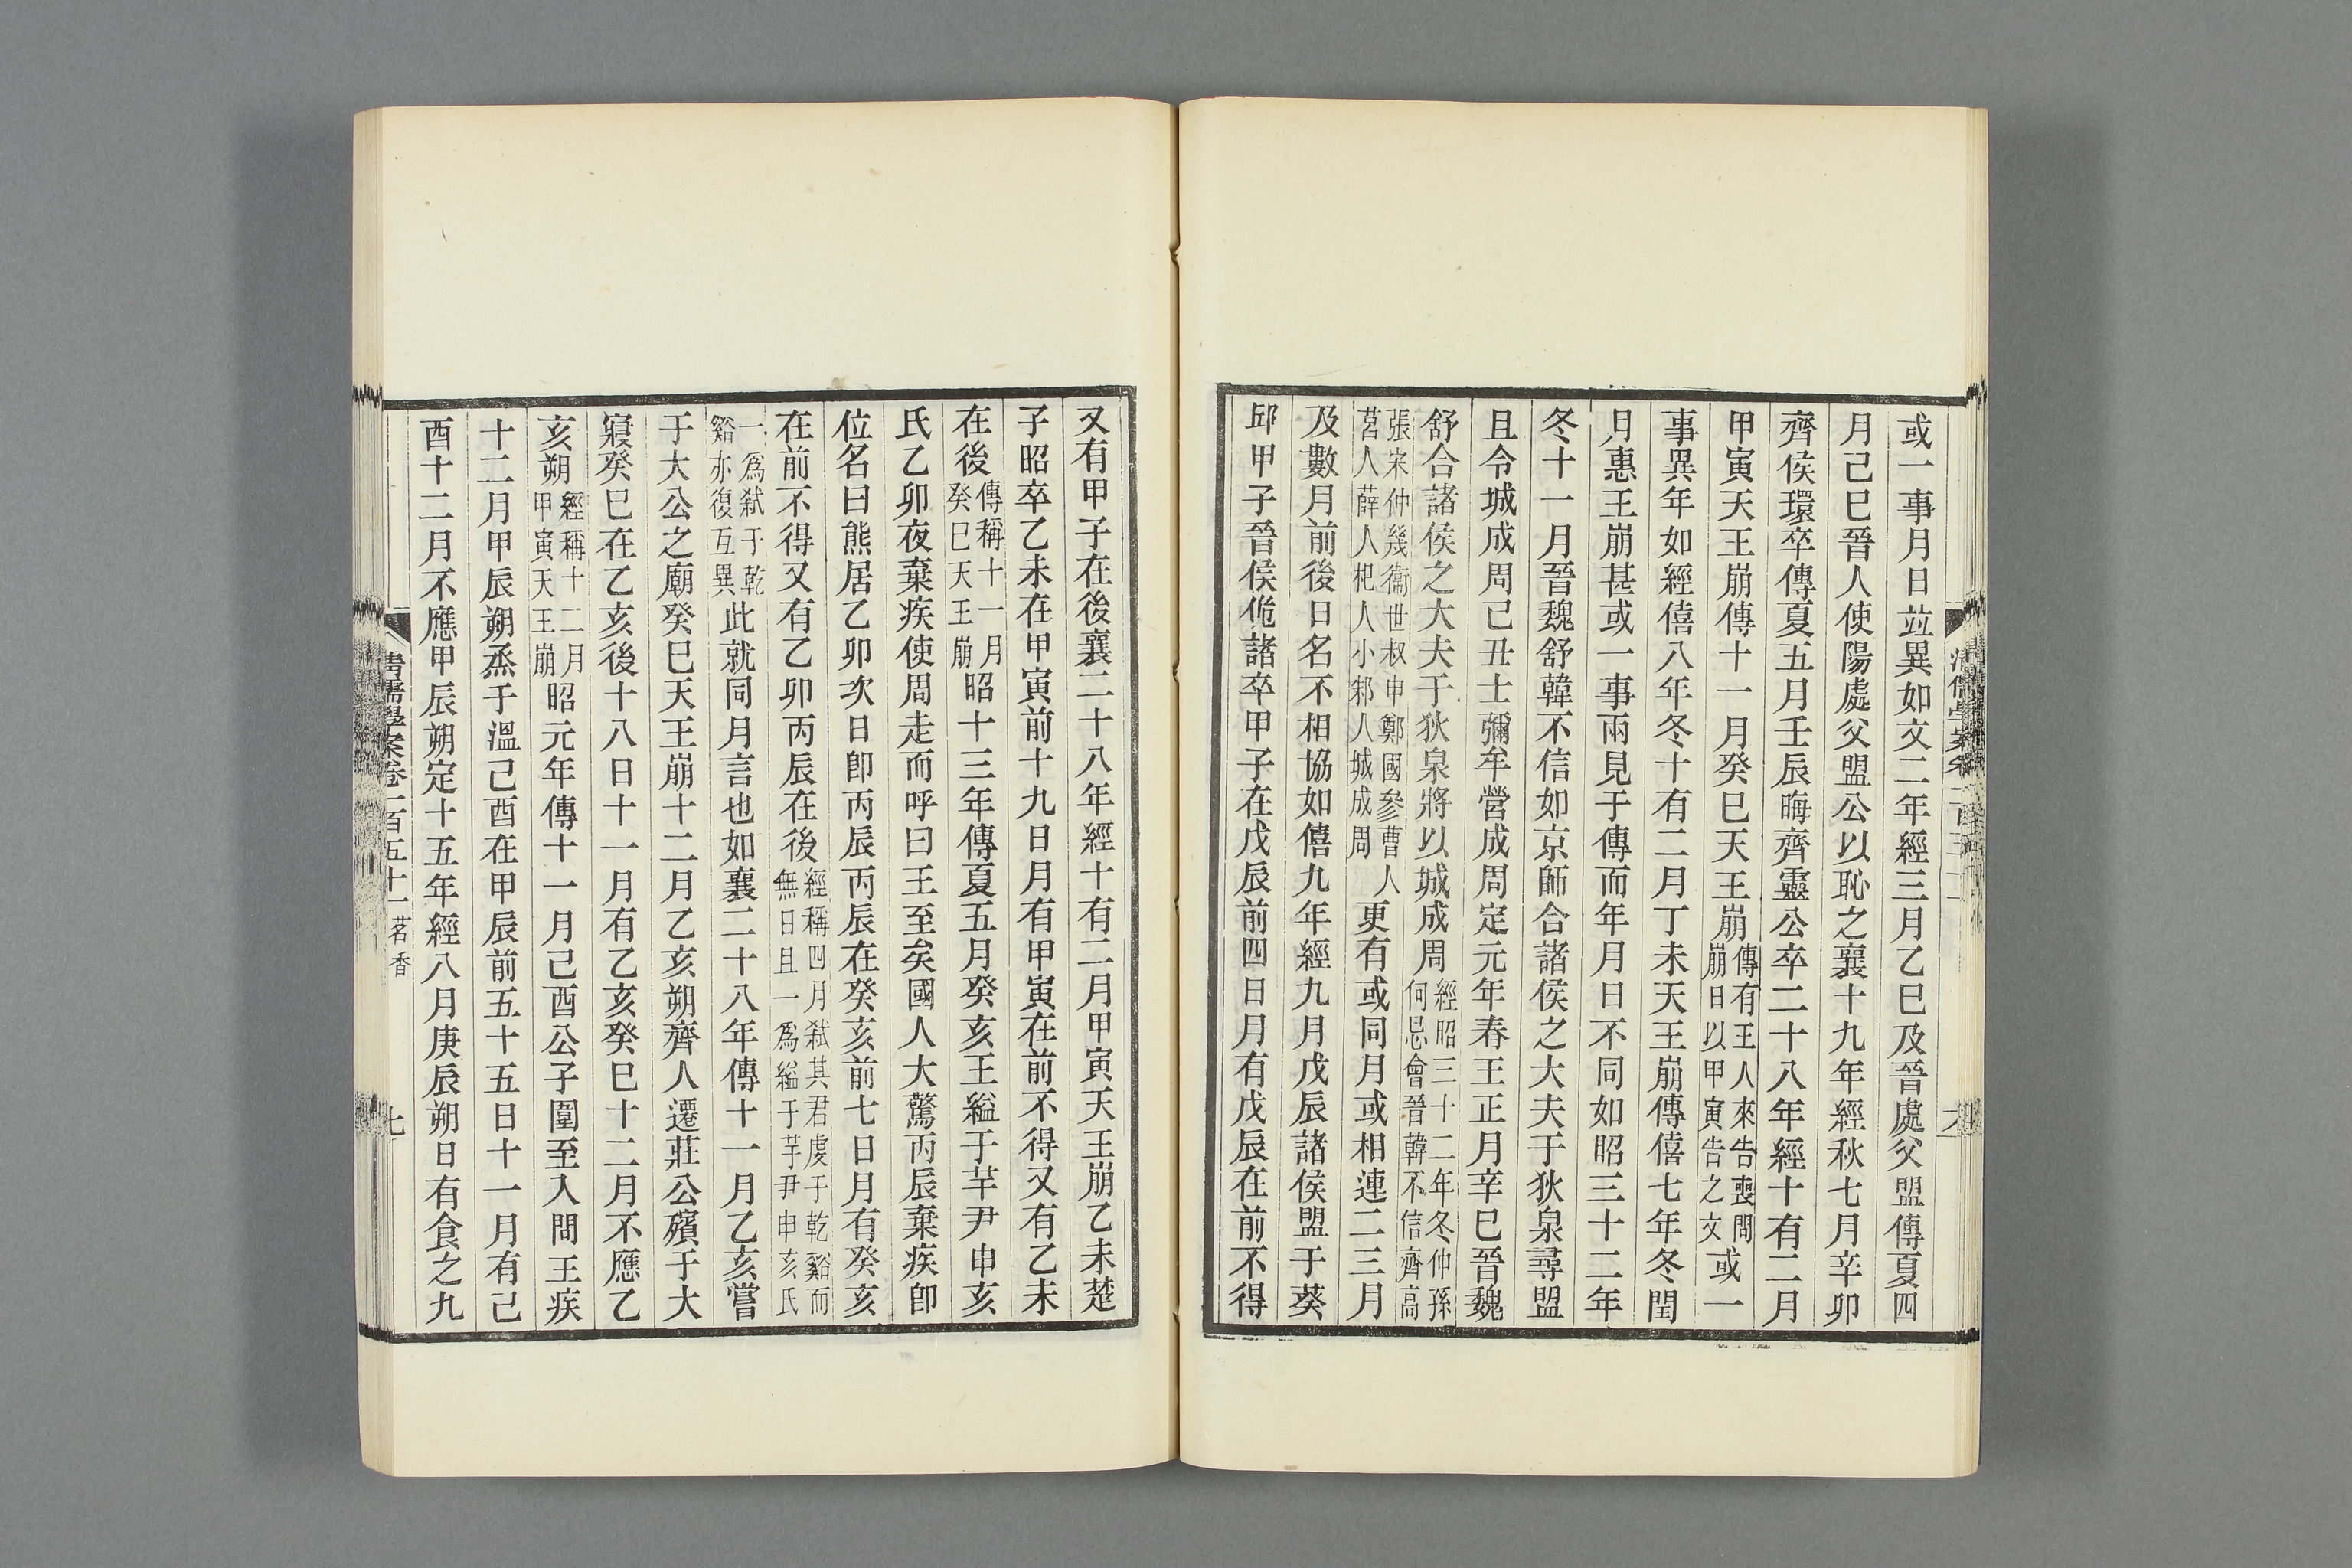 或一事月日竝異如文二年經三月乙巳及晉處父盟傳夏四
月己巳晉人使陽處父盟公以恥之襄十九年經秋七月辛卯
齊侯環卒傳夏五月壬辰晦齊靈公卒二十八年經十有二月
甲寅天王崩傳十一月癸巳天王崩傳有王人來告喪問崩日以甲寅告之文或一
事異年如經僖八年冬十有二月丁未天王崩傳僖七年冬閏
月惠王崩甚或一事兩見于傳而年月日不同如昭三十二年
冬十一月晉魏舒韓不信如京師合諸侯之大夫于狄泉尋盟
且令城成周己丑士彌牟營成周定元年春王正月辛巳晉魏
舒合諸侯之大夫于狄泉將以城成周經昭三十二年冬仲孫何忌會晉韓不信齊高
張宋仲幾衞世叔申鄭國參曹人莒人薛人杞人小邾人城成周更有或同月或相連二三月
及數月前後日名不相協如僖九年經九月戊辰諸侯盟于葵
邱甲子晉侯佹諸卒甲子在戊辰前四日月有戊辰在前不得
又有甲子在後襄二十八年經十有二月甲寅天王崩乙未楚
子昭卒乙未在甲寅前十九日月有甲寅在前不得又有乙未
在後傳稱十一月癸巳天王崩昭十三年傳夏五月癸亥王縊于芊尹申亥
氏乙卯夜棄疾使周走而呼曰王至矣國人大驚丙辰棄疾卽
位名曰熊居乙卯次日卽丙辰丙辰在癸亥前七日月有癸亥
在前不得又有乙卯丙辰在後經稱四月弑其君虔于乾谿而無日且一爲縊于芋尹申亥氏
一爲弑于乾谿亦復互異此就同月言也如襄二十八年傳十一月乙亥嘗
于大公之廟癸巳天王崩十二月乙亥朔齊人遷莊公殯于大
寢癸巳在乙亥後十八日十一月有乙亥癸巳十二月不應乙
亥朔經稱十二月甲寅天王崩昭元年傳十一月己酉公子圍至入問王疾
十二月甲辰朔烝于溫己酉在甲辰前五十五日十一月有己
酉十二月不應甲辰朔定十五年經八月庚辰朔日有食之九
清儒學案卷一百五十一 茗香
七